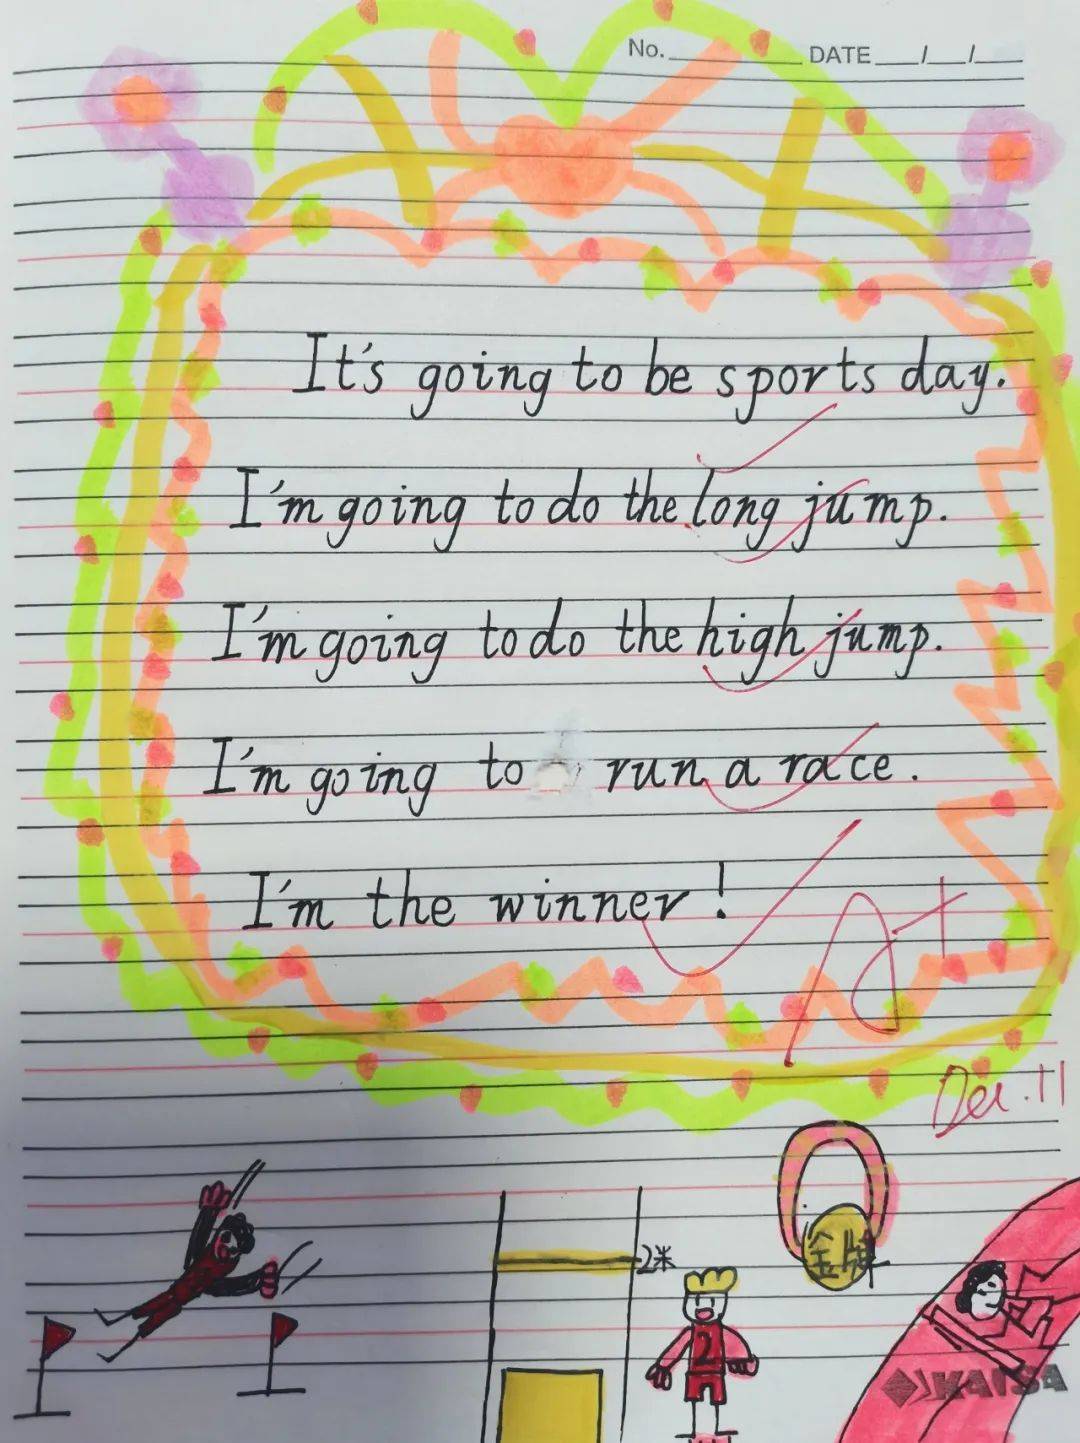 No. DATE / /
It's going to be sports day.
I'm going to do the long jump.
I'm going to do the high jump.
I'm going to run a race.
I'm the winner!
A+
Dec.11
金牌
2米
2
KAISA